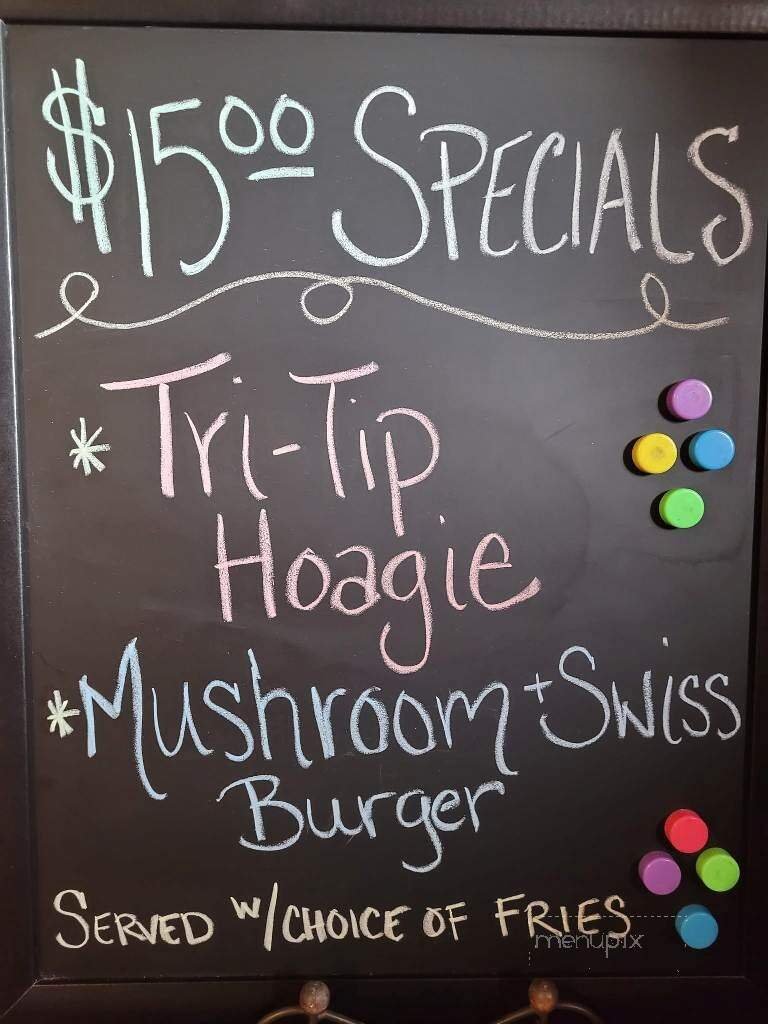 $15.00 SPECIALS
* Tri-Tip
Hoagie
* Mushroom + Swiss
Burger
SERVED W/CHOICE OF FRIES
menupix